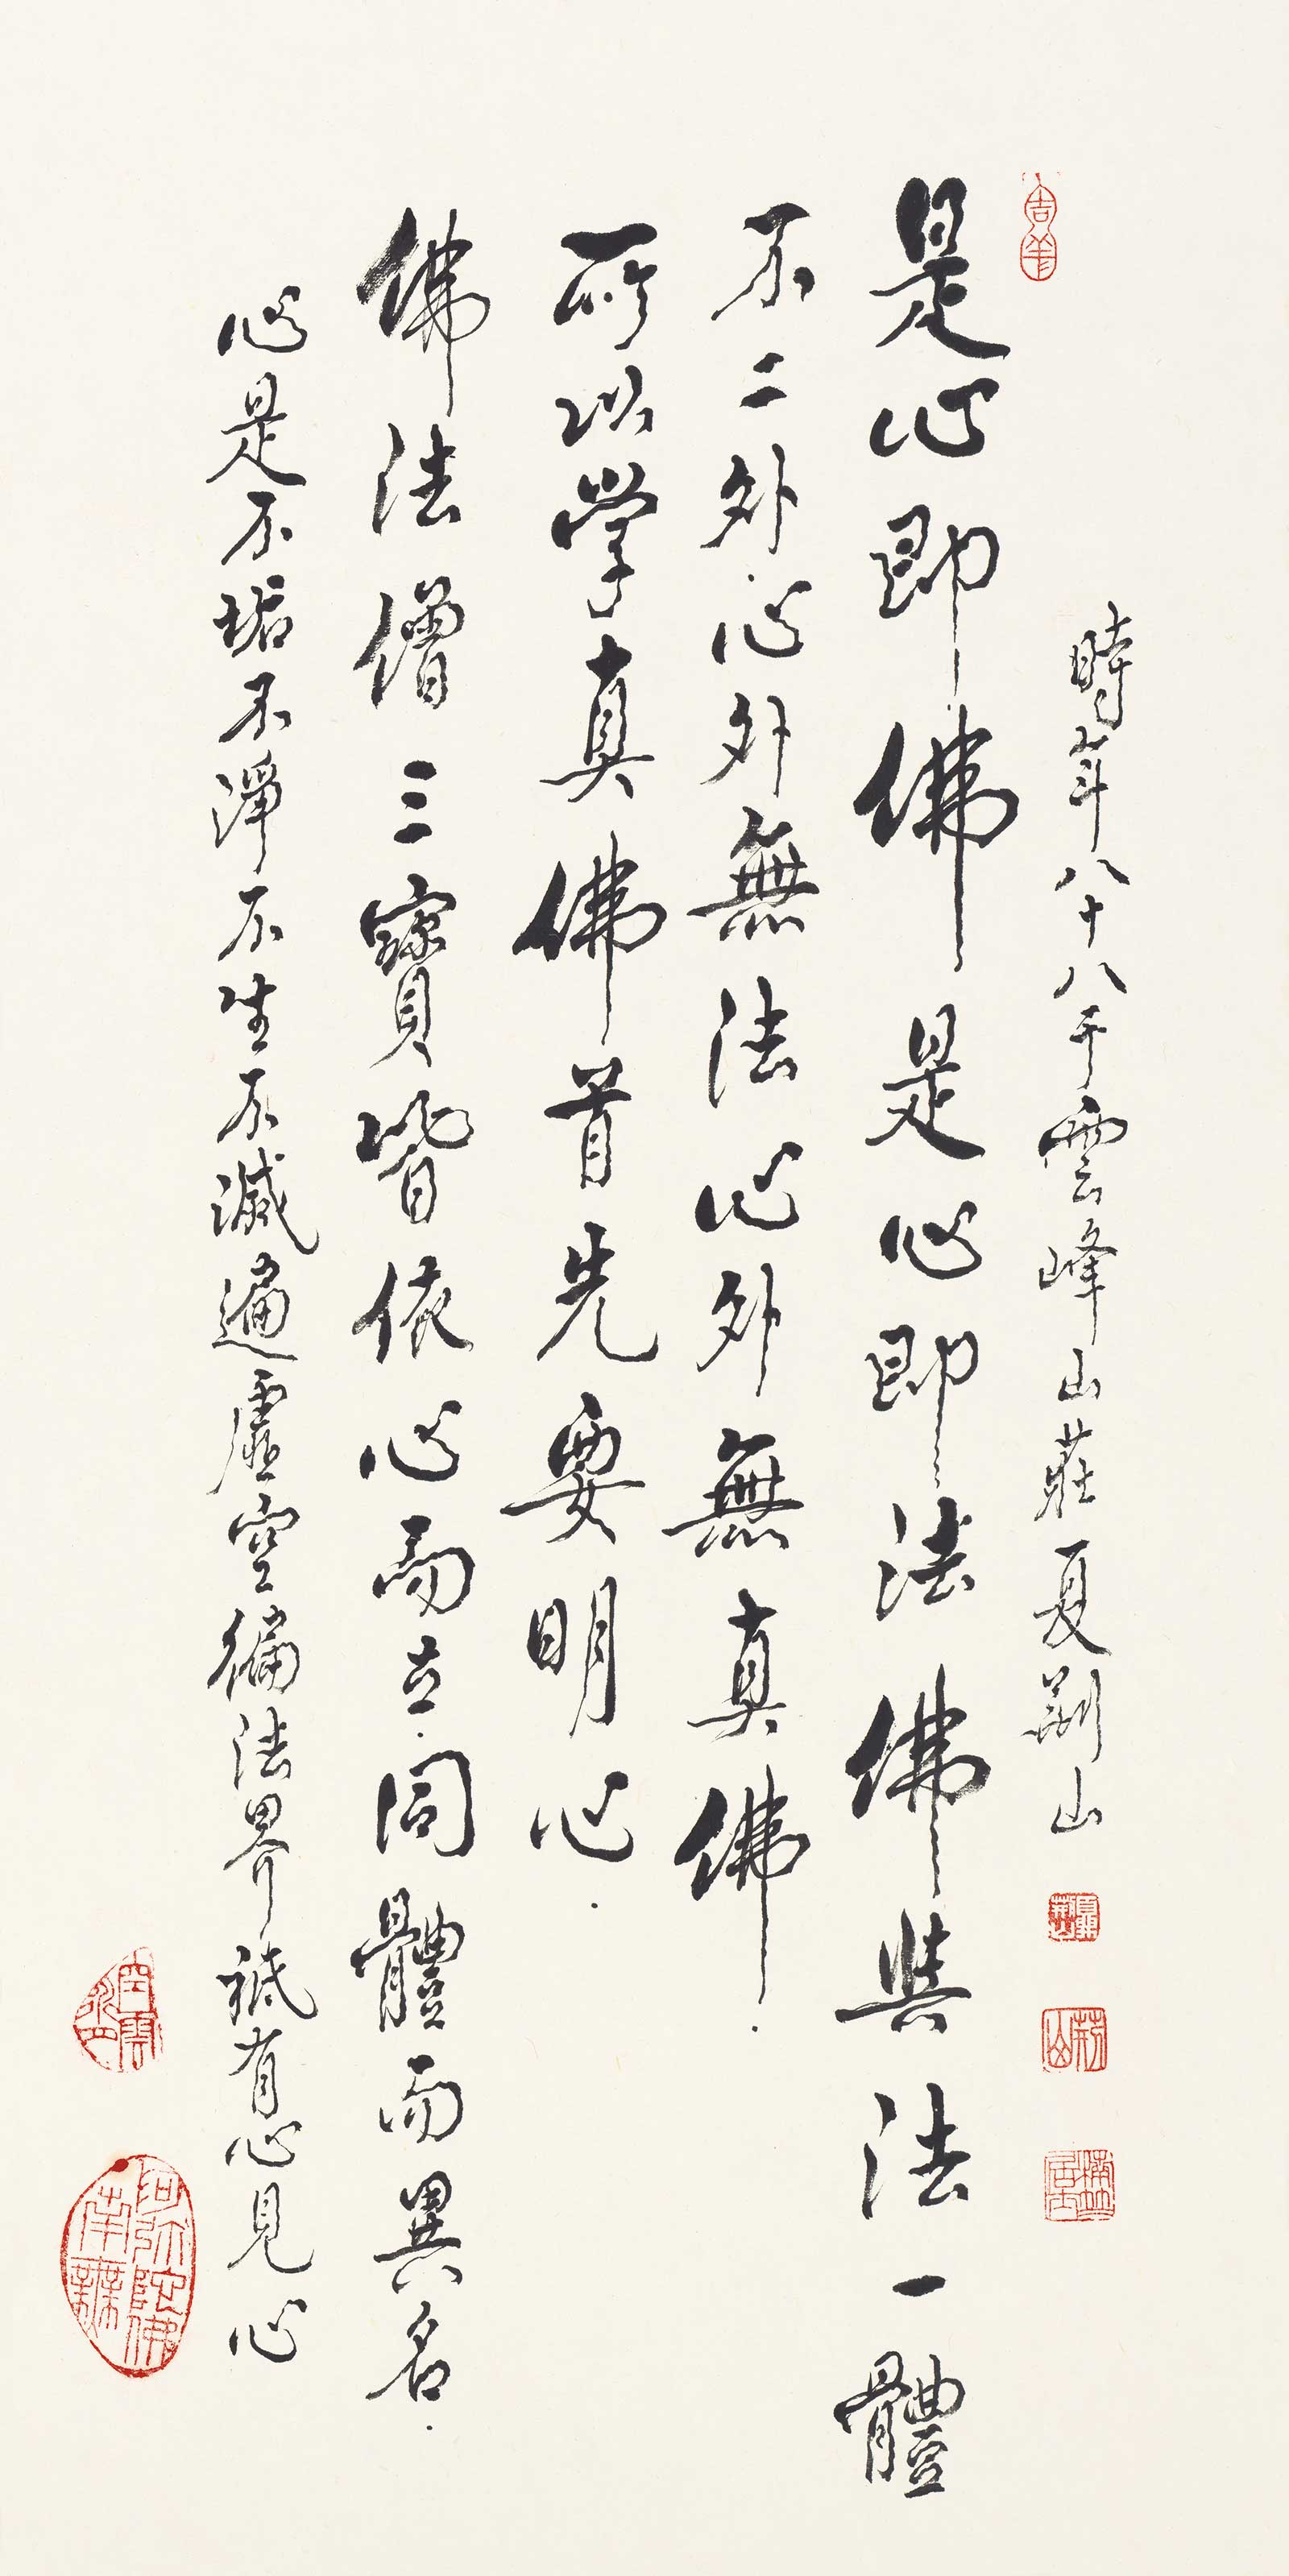 時年八十八于雲峰山莊夏荊山
荊山
吉羊
是心即佛是心即法佛與法一體
不二外心外無法心外無真佛
所以學真佛首先要明心
佛法僧三寶皆依心而立同體而異名
心是不垢不淨不生不滅遍虛空徧法界祇有心見心
阿弥陀佛南無